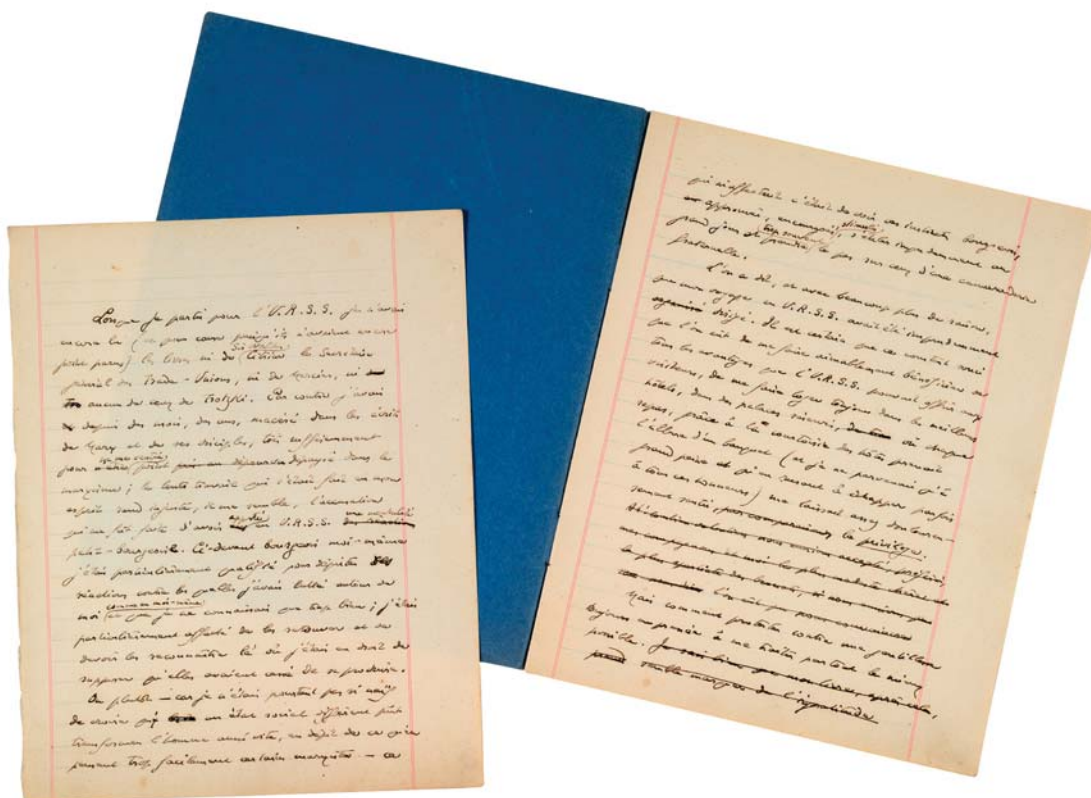 Lorsque je partis pour l'U.R.S.S. je n'avais
encore lu (et pour cause puisqu'ils n'avaient encore
point paru) les livres ni de Sir Walter Citrine le Secrétaire
général des Trade-Unions, ni de Mercier, ni
aucun de ceux de Trotzki. Par contre j'avais
depuis des mois, des ans, macéré dans les écrits
de Marx et de ses disciples, très suffisamment
pour me sentir point dépaysé dans le
marxisme; le lent travail qui s'était fait en mon
esprit rend injuste, à ce me semble, l'accusation
qui me fut faite d'avoir apporté en U.R.S.S. une mentalité
petit-bourgeois. Ci-devant bourgeois moi-même
j'étais particulièrement qualifié pour dépister
réactions contre lesquelles j'avais lutté autour de
moi comme en moi-même que je ne connaissais que trop bien; j'étais
particulièrement affecté de les retrouver et de
devoir les reconnaître là où j'étais en droit de
supposer qu'elles avaient cessé de se produire.
Ou plutôt — car je n'étais pourtant pas si naïf
de croire qu' un état social différent pût
transformer l'homme aussi vite, en dépit de ce que
pensent trop facilement certains marxistes — ce
qui m'affectait c'était de voir ces instincts bourgeois,
approuvés, encouragés, stimulés, s'étaler impudemment au
grand jour et prendre trop souvent le pas sur ceux d'une camaraderie
fraternelle.
L'on a dit, et avec beaucoup plus de raison,
que mon voyage en U.R.S.S. avait été imprudemment
dirigé. Il est certain que ce constant souci
que l'on eut de me faire aimablement bénéficier de
tous les avantages que l'U.R.S.S. pouvait offrir aux
visiteurs, de me faire loger toujours dans les meilleurs
hôtels, dans des palaces, où chaque
repas, grâce à la courtoisie des hôtes prenait
l'allure d'un banquet (et je ne parvenais qu'à
grand peine et qu'en rusant à échapper parfois
à tous ces honneurs) me laissait assez douloureu-
sement sentir, le privilège.
Mais comment protester contre une gentillesse
toujours empressée à me traiter partout le mieux
possible. Je sais bien que mon livre, après cela,
semble marqué de l'ingratitude